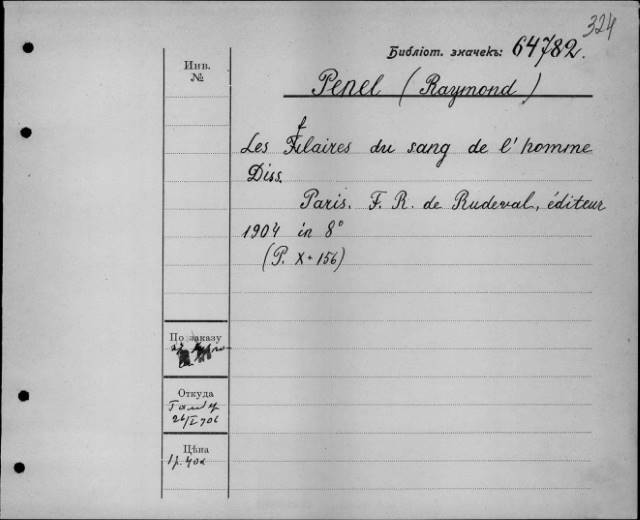 324
Библіот. значекъ: 64782.
Инв.
№
Penel (Raymond)
Les filaires du sang de l'homme
Diss.
Paris. F. R. de Rudeval, éditeur
1904 in 8°
(P. X + 156)
По заказу
Откуда
26/I 906
Цѣна
1 р. 40к